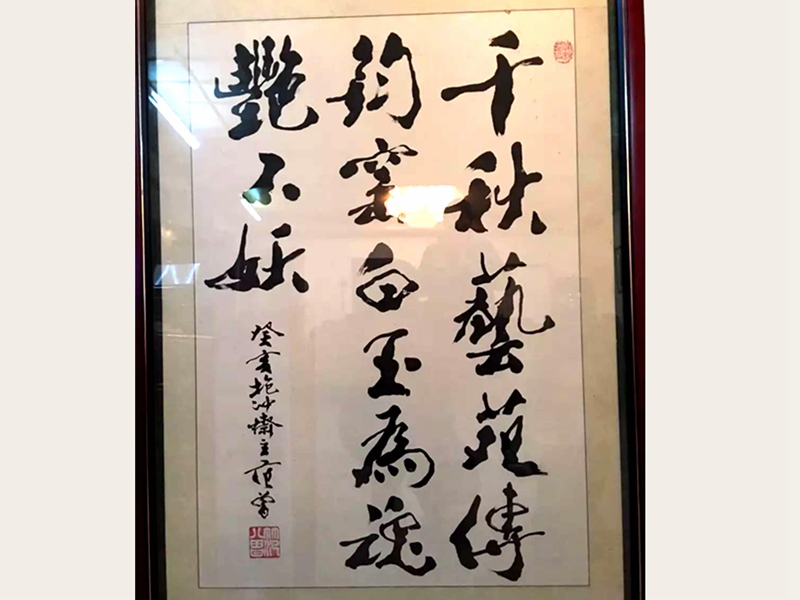 千秋藝苑傳
鈞窯白玉為魂
艷不妖
癸亥抱沖齋主范曾